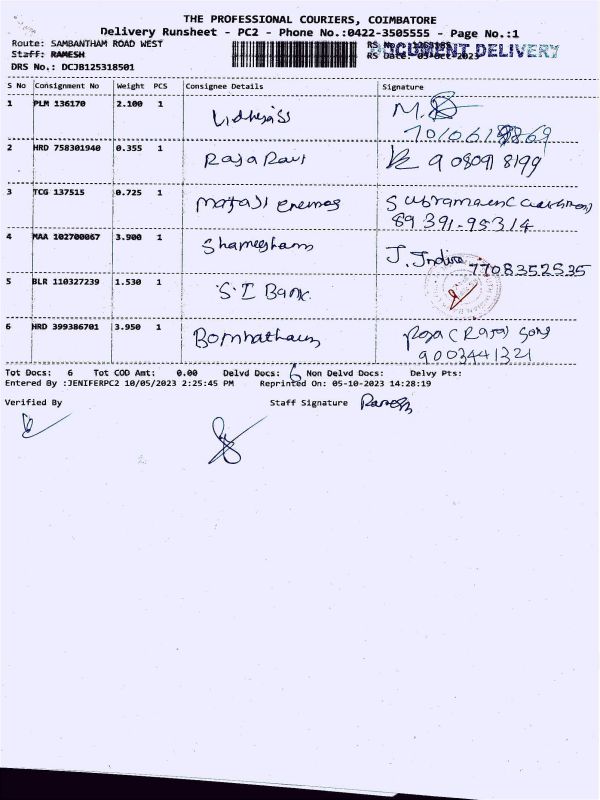 THE PROFESSIONAL COURIERS, COIMBATORE
Delivery Runsheet - PC2 - Phone No.:0422-3505555 - Page No.:1
Route: SAMBANTHAM ROAD WEST RS No.:
DOCUMENT DELIVERY
Staff: RAMESH RS Date: 05-Oct-2023
DRS No.: DCJB125318501
S No Consignment No Weight PCS Consignee Details Signature
1 PLM 136170 2.100 1 M.
2 HRD 758301940 0.355 1 Raja Ravi 9 08091 8199
3 TCG 137515 0.725 1 mataji
89 391-95314
4 MAA 102700067 3.900 1 J. Indira 7708352535
5 BLR 110327239 1.530 1 S.I Bank.
6 HRD 399386701 3.950 1 Roja (Raja) Song
9003441321
Tot Docs: 6 Tot COD Amt: 0.00 Delvd Docs: 6 Non Delvd Docs: Delvy Pts:
Entered By :JENIFERPC2 10/05/2023 2:25:45 PM Reprinted On: 05-10-2023 14:28:19
Verified By Staff Signature Ramesh